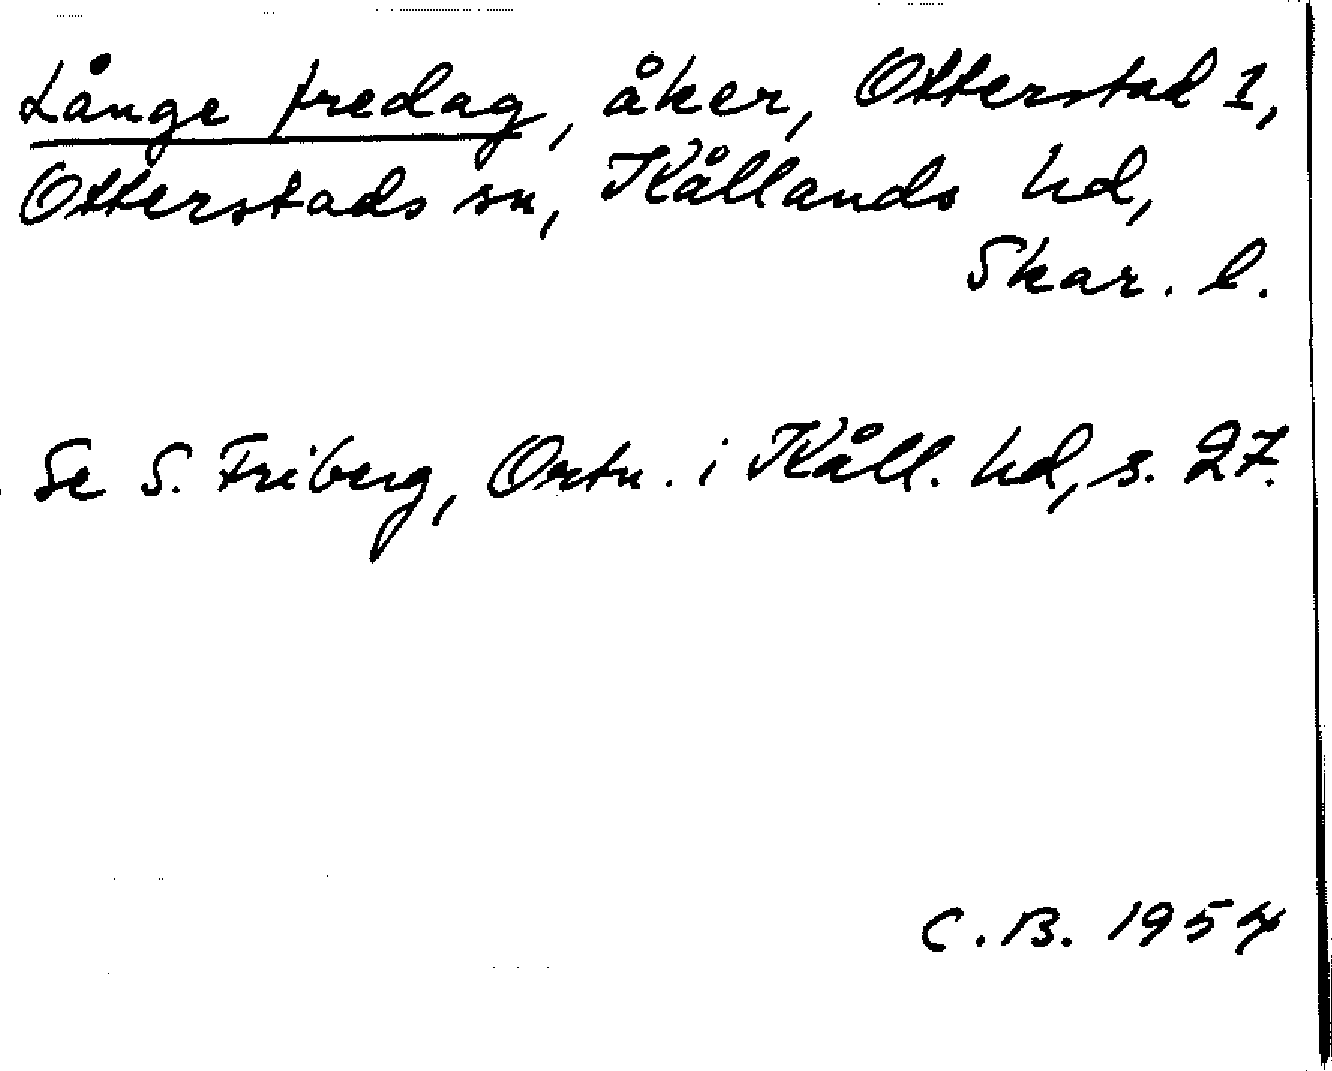 Långe fredag, åker, Otterstad 1,
Otterstads sn, Kållands hd,
Skar. l.
Se S. Friberg, Ortn. i Kåll. hd, s. 27.
C. B. 1954